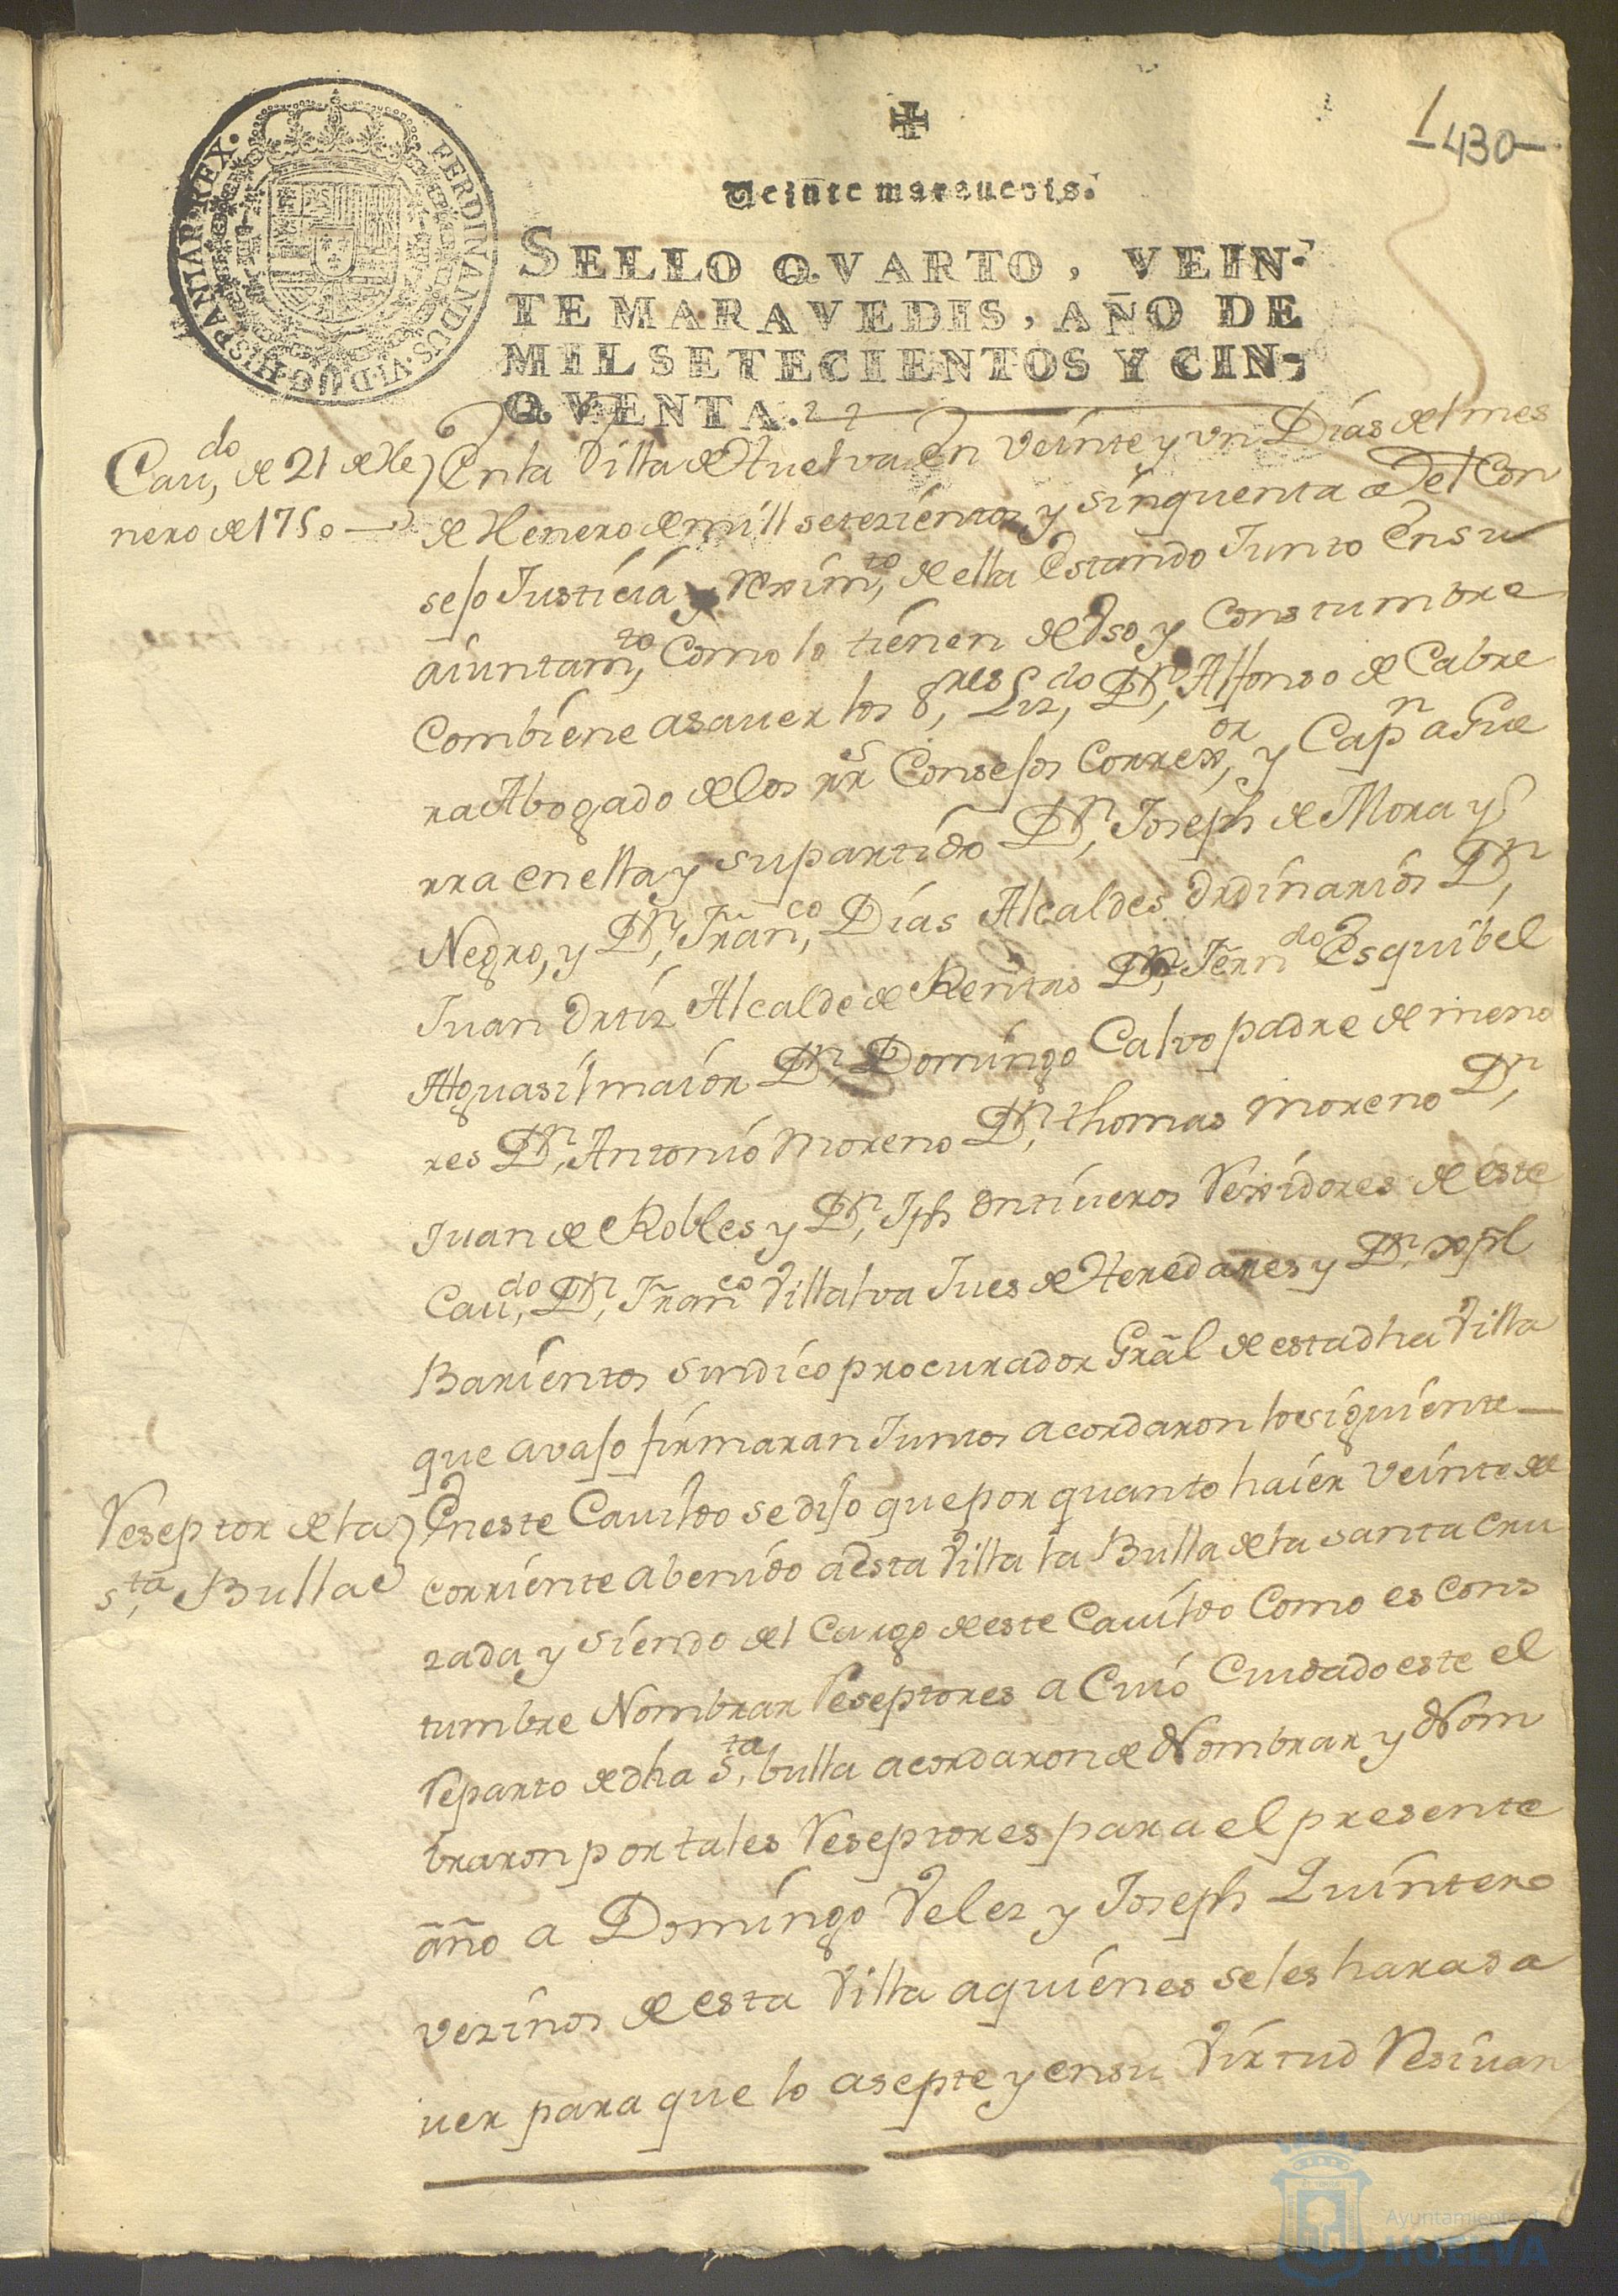 1
430
Veinte marauedis.
SELLO QVARTO, VEIN-
TE MARAVEDIS, AÑO DE
MIL SETECIENTOS Y CIN-
QVENTA.
FERDINANDUS.VI.D.G.HISPANIAR.REX.
Cau,do de 21 de He
nero de 1750
En la Villa de Huelva En veinte y vn Días del mes
de Henero de mill setezientos y sinquenta a Del Con
sejo Justicia y Reximto, de ella Estando Junto En su
aiuntamto, Como lo tienen de Vso y Constumbre
Combiene asauer los Sres, Liz,do Dn, Alfonso de Cabre
ra Abogado de los rrs Consejos Correxor, y Capn a Gue
rra en ella y su partido Dn, Joseph de Mora y
Negro, y Dn, Franco, Días Alcaldes Ordinarios Dn,
Juan Ortiz Alcalde de Rentas Dn, Ferndo Esquibel
Alguasil maior Dn, Domingo Calvo padre de meno
res Dn, Antonio Moreno Dn, thomas Moreno Dn,
Juan de Robles y Dn, Jph Ontiueros Rexidores de este
Cau,do Dn, Franco Villalva Jues de Heredades y Dn, xpl
Barientos sindico procurador Gral de esta dha Villa
que avajo firmaran Juntos acordaron lo siguiente
Reseptor de la
sta, Bulla
En este Cauildo se dijo que por quanto haier veinte de
corriente a benido a Esta Villa la Bulla de la santa cru
zada y siendo del Cargo de este Cauildo Como es Cons
tumbre Nombrar Reseptores a Cuio Cuidado este el
Reparto de dha Sta, bulla acordaron de Nombrar y Nom
braron por tales Reseptores para el presente
año a Domingo Velez y Joseph Quintero
vezinos de esta Villa a quienes se les hara sa
uer para que lo asepte y en su Virtud Resiuan
Ayuntamiento de
HUELVA